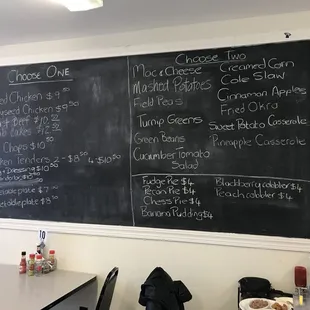 Choose One
Chicken $9.50
Chicken $9.50
$10.50
Cakes $12.50
Chops $10.00
Tenders 2-$8 4-$10.50
Dressing $10.00
plate $7
plate $8.50
Choose Two
Mac & Cheese
Mashed Potatoes
Field Peas
Turnip Greens
Green Beans
Cucumber Tomato
Salad
Creamed Corn
Cole Slaw
Cinnamon Apples
Fried Okra
Sweet Potato Casserole
Pineapple Casserole
Fudge Pie $4
Pecan Pie $4
Chess Pie $4
Banana Pudding $4
Blackberry cobbler $4
Peach cobbler $4
10